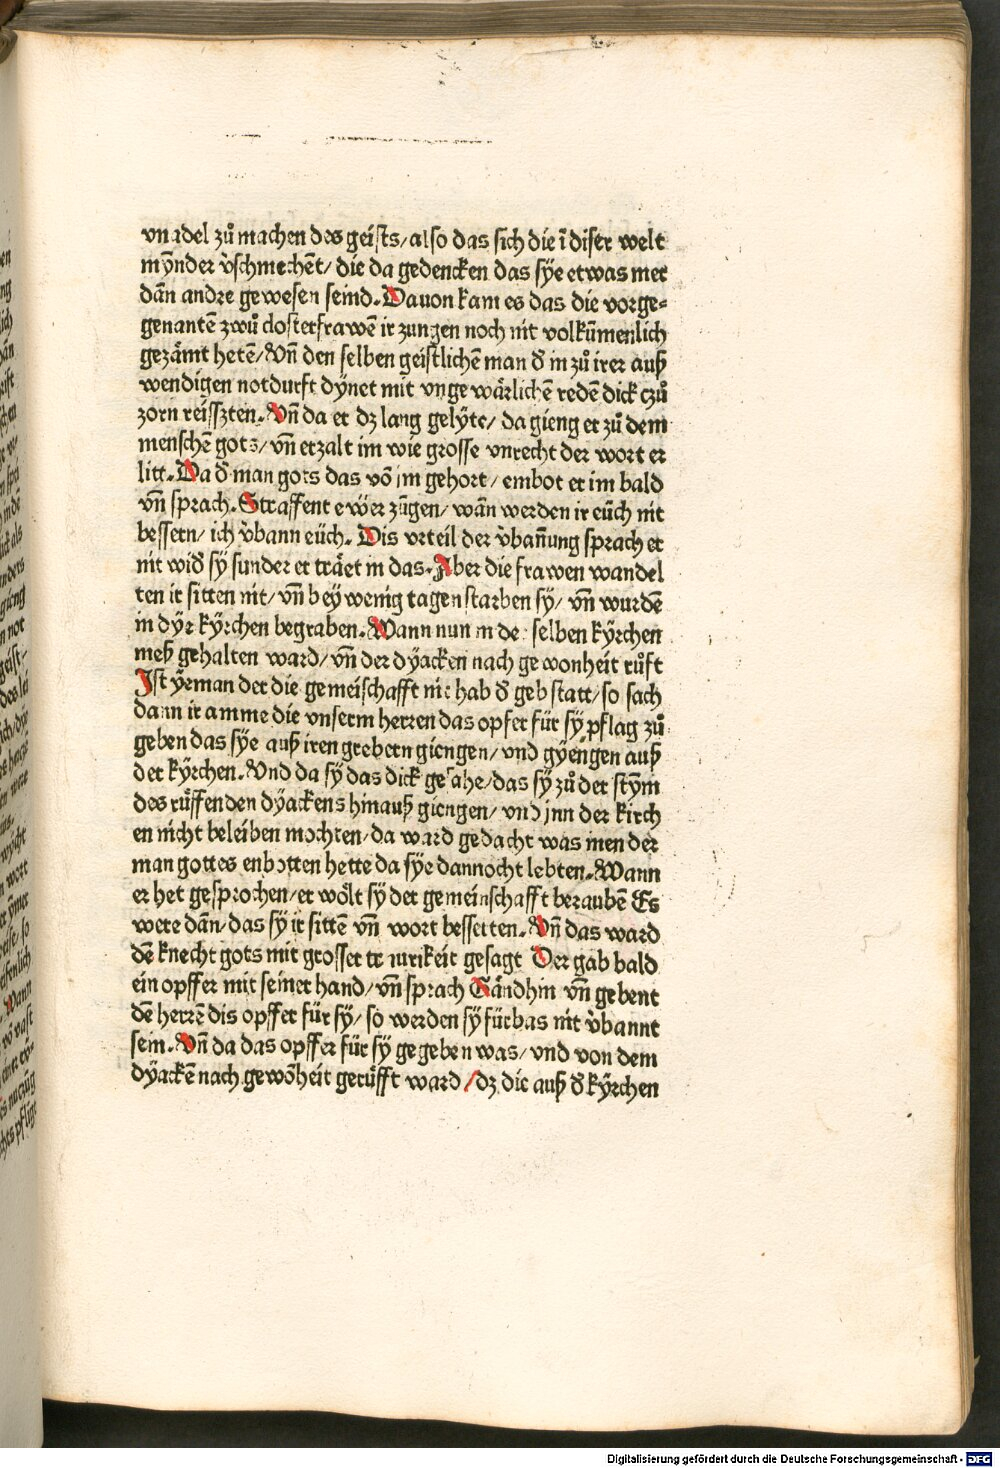 vnadel zuͦ machen des geists/ also das sich die ī diser welt
mÿnder v̉schmechēt/ die da gedencken das sÿe etwas mer
dān andre gewesen seind. Dauon kam es das die vorge⸗
genantē zwuͦ closterfrawē ir zungen noch nit volkūmenlich
gezämt hetē/ Vn̄ den selben geistlichē man d̕ in zuͦ irer auß
wendigen notdurft dÿnet mit vngewärlichē redē dick czuͦ
zorn reisszten. Vn̄ da er dz lang gelÿte/ da gieng er zuͦ dem
menschē gots/ vn̄ erzalt im wie grosse vnrecht der wort er
litt. Da d̕ man gots das vō jm gehort/ embot er im bald
vn̄ sprach. Straffent ewër zūgen/ wān werden ir eüch nit
bessern/ ich v̉bann eüch. Dis vrteil der v̉ban̄ung sprach er
nit wid̕ sÿ sunder er träet in das. Aber die frawen wandel
ten ir sitten nit/ vn̄ beÿ wenig tagen starben sÿ/ vn̄ wurdē
in dÿr kÿrchen begraben. Wann nun in der selben kÿrchen
meß gehalten ward/ vn̄ der dÿacken nach gewonheit ruͦft
Ist ÿeman der die gemeischafft nit hab d̕ geb statt/ so sach
dann ir amme die vnserm herren das opfer für sÿ pflag zuͦ
geben das sÿe auß iren grebern giengen/ vnd gÿengen auß
der kÿrchen. Vnd da sÿ das dick gesahe/ das sÿ zuͦ der stÿm
des rüffenden dÿackens hinauß giengen/ vnd jnn der kirch
en nicht beleiben mochten/ da ward gedacht was inen der
man gottes enbotten hette da sÿe dannocht lebten. Wann
er het gesprochen/ er wölt sÿ der gemeinschafft beraubē Es
were dān/ das sÿ ir sittē vn̄ wort besserten. Vn̄ das ward
dē knecht gots mit grosser trawrikeit gesagt Der gab bald
ein opffer mit seiner hand/ vn̄ sprach Gändhin vn̄ gebent
dē herrē dis opffer für sÿ/ so werden sÿ fürbas nit v̉bannt
sein. Vn̄ da das opffer für sÿ gegeben was/ vnd von dem
dÿackē nach gewōheit gerüfft ward/ dz die auß d̕ kÿrchen
Digitalisierung gefördert durch die Deutsche Forschungsgemeinschaft - DFG